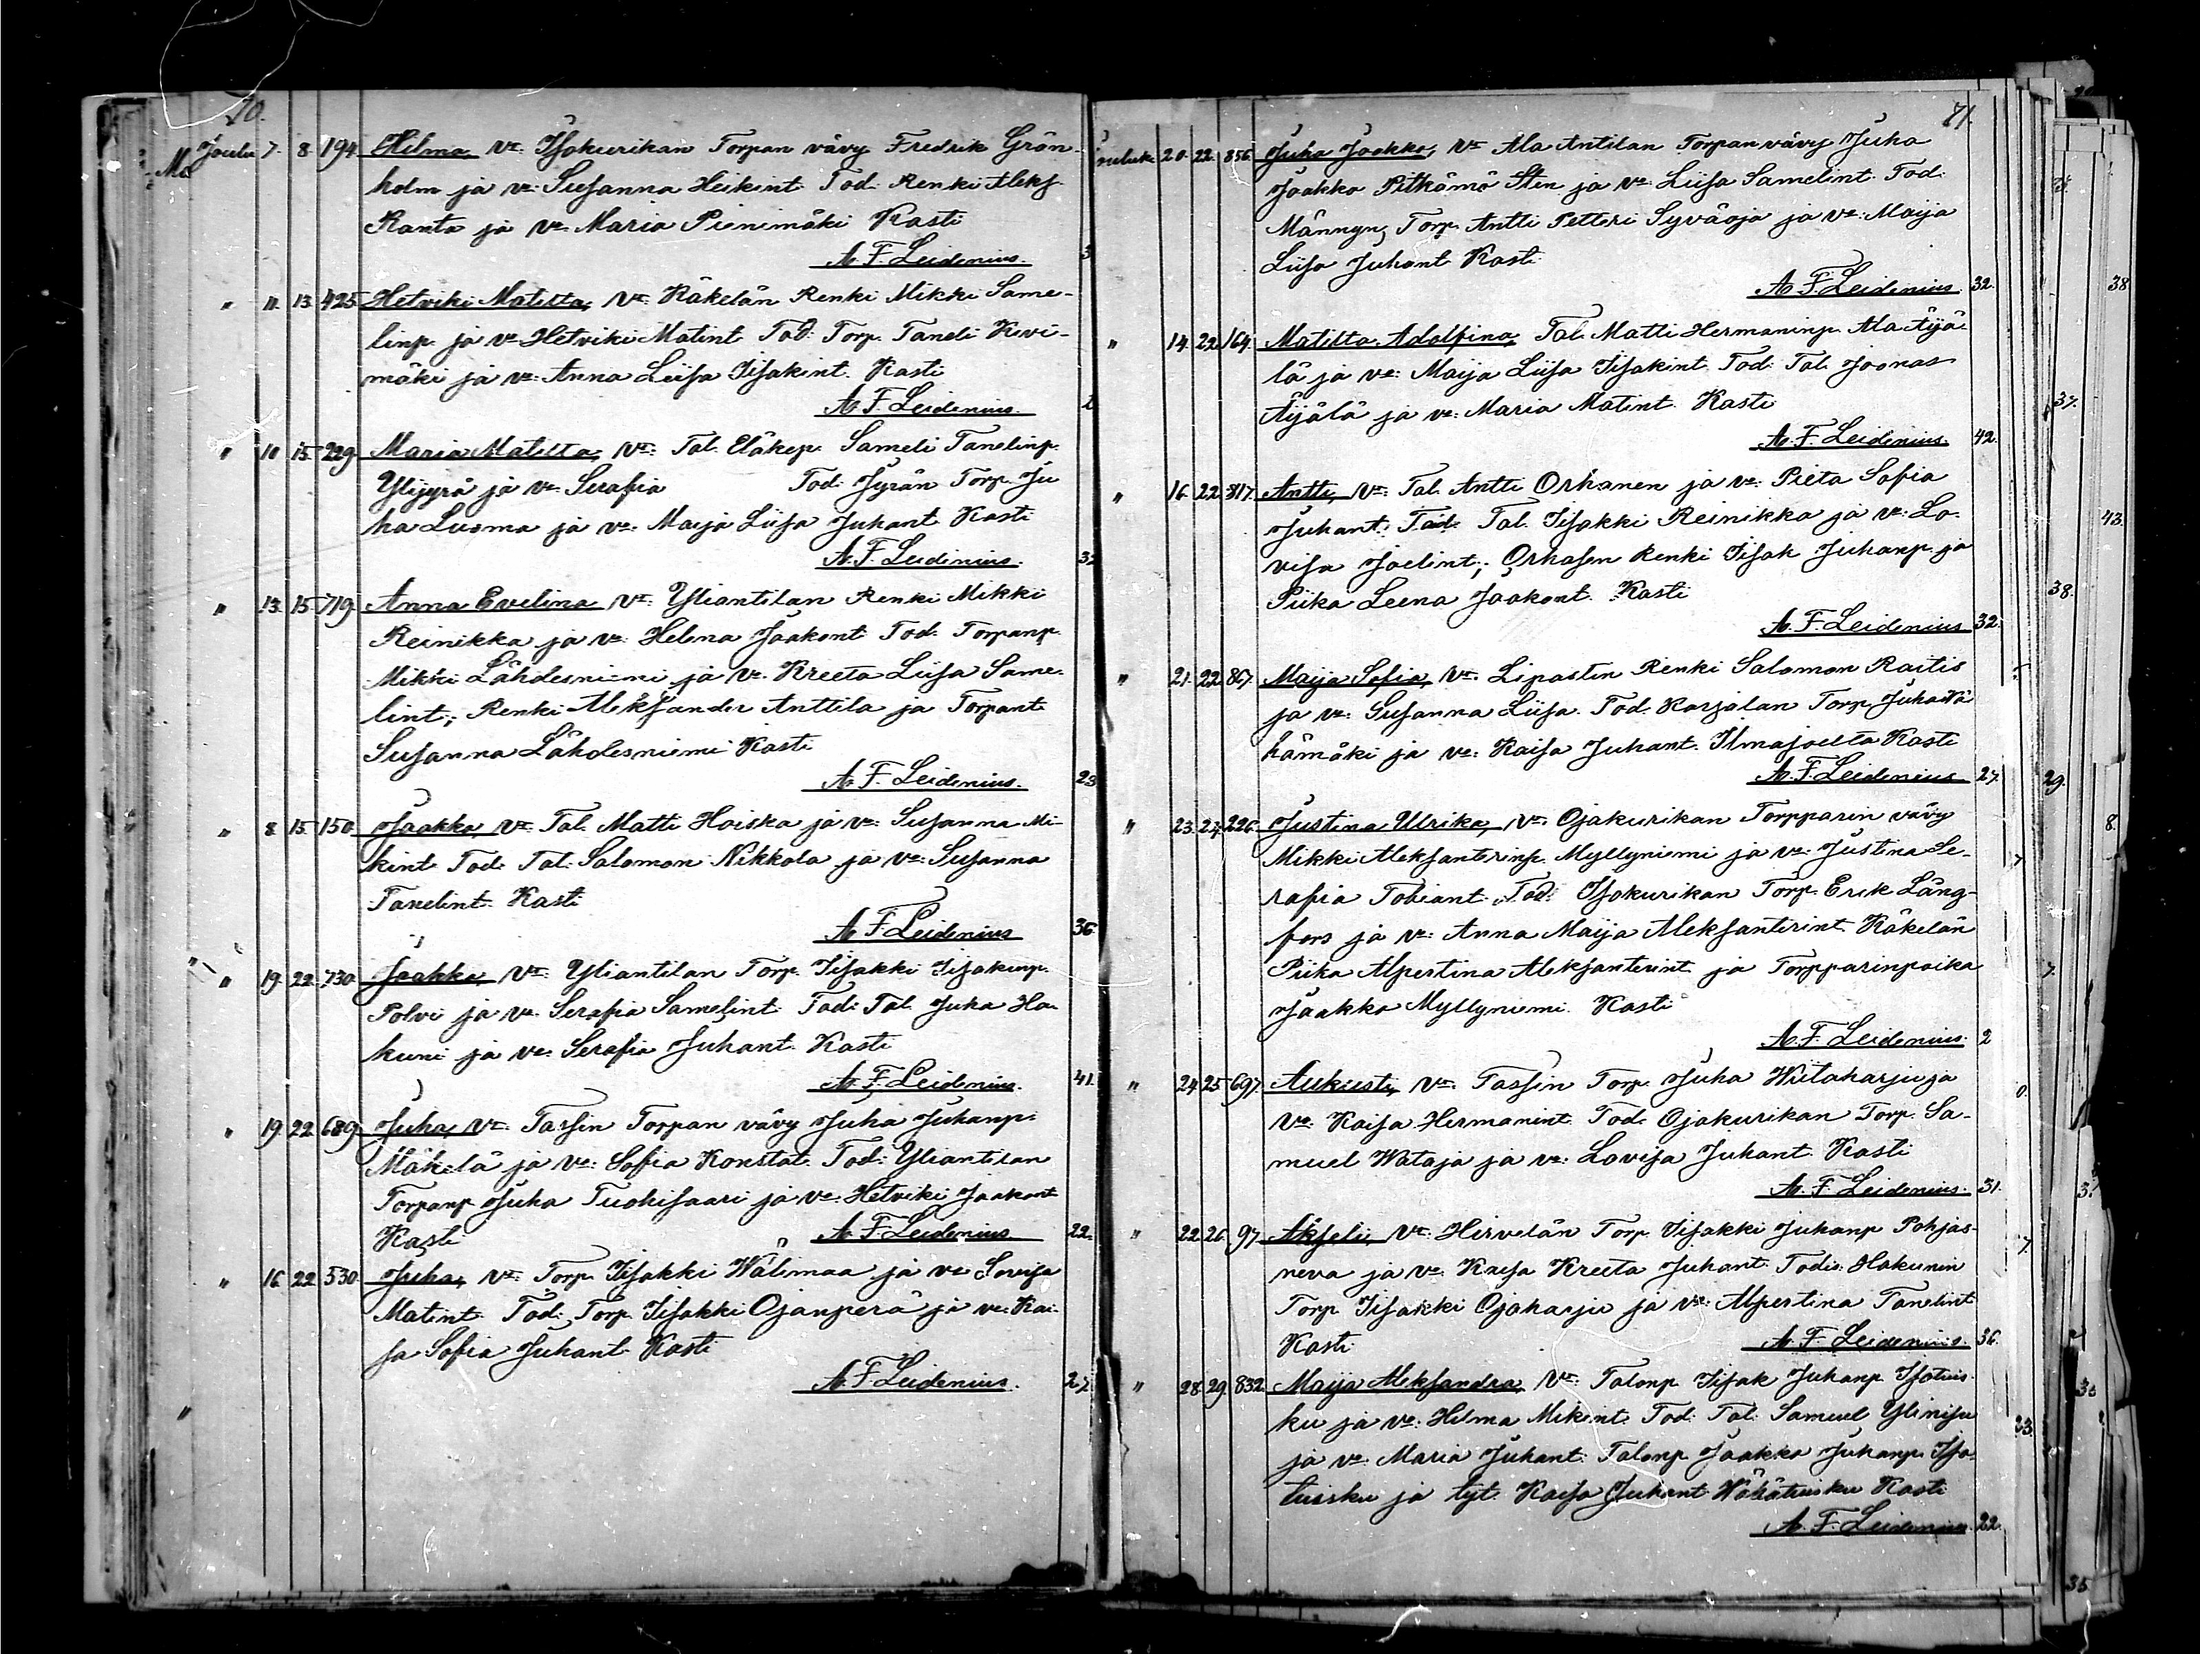 70.
Joulu 7. 8. 194. Hilma, Vt: Isokurikan Torpan vävy Fredrik Grön-
holm ja vo: Susanna Heikint. Tod: Renki Aleks.
Ranta ja vo: Maria Pienimäki Kasti
A. F. Leidenius.
" 11. 13. 425. Hetviki Matilta, Vt: Käkelän Renki Mikki Same-
linp. ja vo: Hetviki Matint. Tod: Torp. Taneli Kivi-
mäki ja vo: Anna Liisa Iisakint. Kasti
A. F. Leidenius.
" 10. 15. 229. Maria Matilta, Vt: Tal. Eläkep. Sameli Tanelinp.
Ylijyrä ja vo: Serafia Tod: Jyrän Torp. Ju
ha Luoma ja vo: Maija Liisa Juhant. Kasti
A. F. Leidenius.
" 13. 15. 719. Anna Evelina Vt: Yliantilan Renki Mikki
Reinikka ja vo: Helena Jaakont. Tod: Torpanp.
Mikki Lähdesniemi ja vo: Kreeta Liisa Same-
lint; Renki Aleksander Anttila ja Torpant.
Susanna Lähdesniemi Kasti
A. F. Leidenius. 23
" 8. 15. 150. Jaakko Vt: Tal. Matti Hoiska ja vo: Susanna Mi-
kint. Tod: Tal. Salomon Nikkola ja vo: Susanna
Tanelint. Kasti
A. F. Leidenius 36.
" 19. 22. 730. Jaakko, Vt: Yliantilan Torp. Iisakki Iisakinp.
Polvi ja vo: Serafia Samelint. Tod: Tal. Juha Ha-
kuni ja vo: Serafia Juhant. Kasti
A. F. Leidenius. 41.
" 19. 22. 689. Juha, Vt: Tassin Torpan vävy Juha Juhanp.
Mäkelä ja vo: Sofia Konstat. Tod: Yliantilan
Torpanp. Juha Tuohisaari ja vo: Hetviki Jaakont.
Kasti A. F. Leidenius 22.
" 16. 22. 530. Juha, Vt: Torp. Iisakki Wälimaa ja vo: Lovisa
Matint. Tod: Torp. Iisakki Ojanperä ja vo: Kai-
sa Sofia Juhant. Kasti
A. F. Leidenius. 27.
71.
20. 22. 856. Juha Jaakko, Vt: Ala Antilan Torpan vävy Juha
Jaakko Pitkämö Sten ja vo: Liisa Samelint. Tod:
Männyn, Torp. Antti Petteri Syväoja ja vo: Maija
Liisa Juhant. Kasti
A. F. Leidenius. 32.
" 14. 22. 164. Matilta Adolfina, Tal. Matti Hermaninp. Ala Äijä-
lä ja vo: Maija Liisa Iisakint. Tod: Tal. Joonas
Äijälä ja vo: Maria Matint. Kasti
A. F. Leidenius. 42.
" 16. 22. 317. Antti, Vt: Tal. Antti Orhanen ja vo: Pieta Sofia
Juhant. Tod: Tal. Iisakki Reinikka ja vo: Lo-
visa Joelint; Orhasen Renki Iisak Juhanp. ja
Piika Leena Jaakont. Kasti
A. F. Leidenius 32.
" 21. 22. 867. Maija Sofia, Vt: Lipastin Renki Salomon Rastis
ja vo: Susanna Liisa. Tod. Karjalan Torp. Juha Wä
hämäki ja vo: Kaisa Juhant. Ilmajoelta Kasti
A. F. Leidenius 27.
" 23. 24. 226. Justina Ulrika, Vt: Ojakurikan Torpparin vävy
Mikki Aleksanterinp. Myllyniemi ja vo: Justina Se-
rafia Tobiant. Tod: Isokurikan Torp. Erik Lång-
fors ja vo: Anna Maija Aleksanterint. Käkelän
Piika Alpertina Aleksanterint. ja Torpparinpoika
Jaakko Myllyniemi. Kasti
A. F. Leidenius. 2
" 24. 25. 697. Aukusti, Vt: Tassin Torp. Juha Wiitaharju ja
vo: Kaisa Hermanint. Tod: Ojakurikan Torp. Sa-
muel Wataja ja vo: Lovisa Juhant. Kasti
A. F. Leidenius. 31.
" 22. 26. 97. Akseli, Vt: Hirvelän Torp. Iisakki Juhanp. Pohjas-
neva ja vo: Kaisa Kreeta Juhant. Todis: Hakunin
Torp. Iisakki Ojaharju ja vo: Alpertina Tanelint.
Kasti A. F. Leidenius. 36.
" 28. 29. 832. Maija Aleksandra, Vt: Talonp. Iisak Juhanp. Isotuis-
ku ja vo: Hilma Mikint. Tod: Tal. Samuel Ylinisu
ja vo: Maria Juhant. Talonp. Jaakko Juhanp. Iso-
tuisku ja tyt. Kaisa Juhant. Wähätuisku Kasti
A. F. Leidenius. 22.